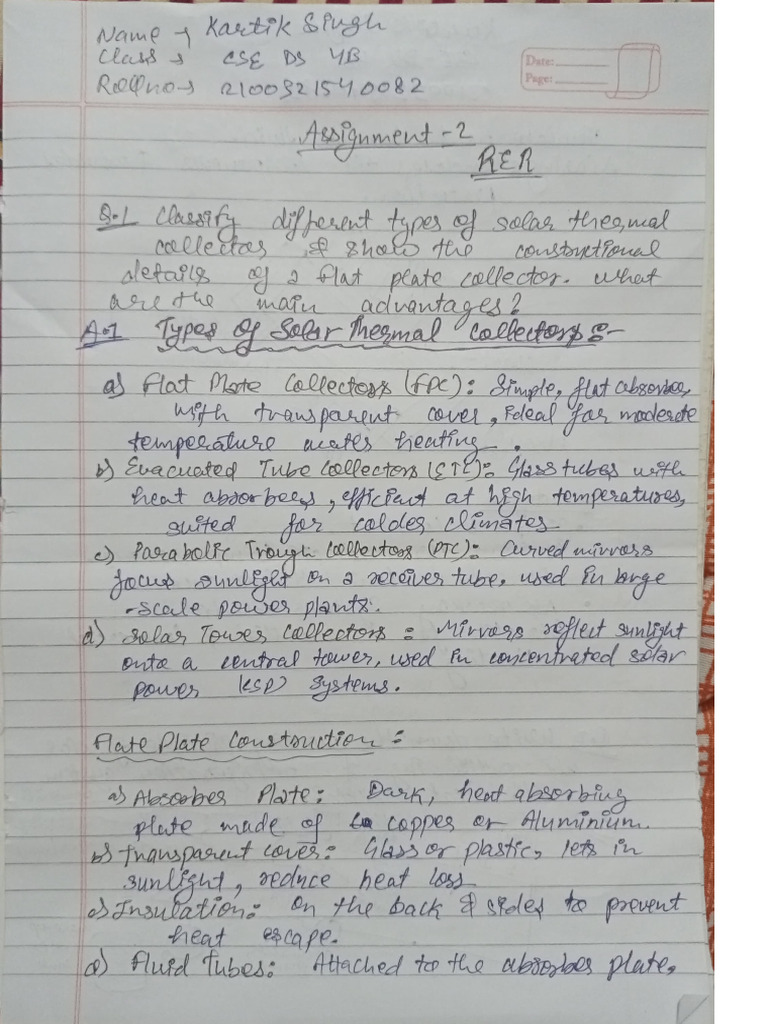 Name → Kartik Singh
Class → CSE DS 4B
Rollno → 2100321540082
Date:
Page:
Assignment - 2
RER
Q.1 Classify different types of solar thermal
collectors & show the constructional
details of a flat plate collector. What
are the main advantages?
A.1 Types of Solar Thermal Collectors :-
a) Flat Plate Collectors (FPC): Simple, flat absorber,
with transparent cover, ideal for moderate
temperature water heating.
b) Evacuated Tube Collectors (ETC): Glass tubes with
heat absorbers, efficient at high temperatures,
suited for colder climates.
c) Parabolic Trough Collectors (PTC): Curved mirrors
focus sunlight on a receiver tube, used in large
-scale power plants.
d) Solar Tower Collectors : Mirrors reflect sunlight
onto a central tower, used in concentrated solar
power (CSP) systems.
Flate Plate Construction :
a) Absorber Plate: Dark, heat absorbing
plate made of copper or Aluminium.
b) Transparent cover: Glass or plastic, lets in
sunlight, reduce heat loss
c) Insulation: On the back & sides to prevent
heat escape.
d) Fluid Tubes: Attached to the absorber plate,